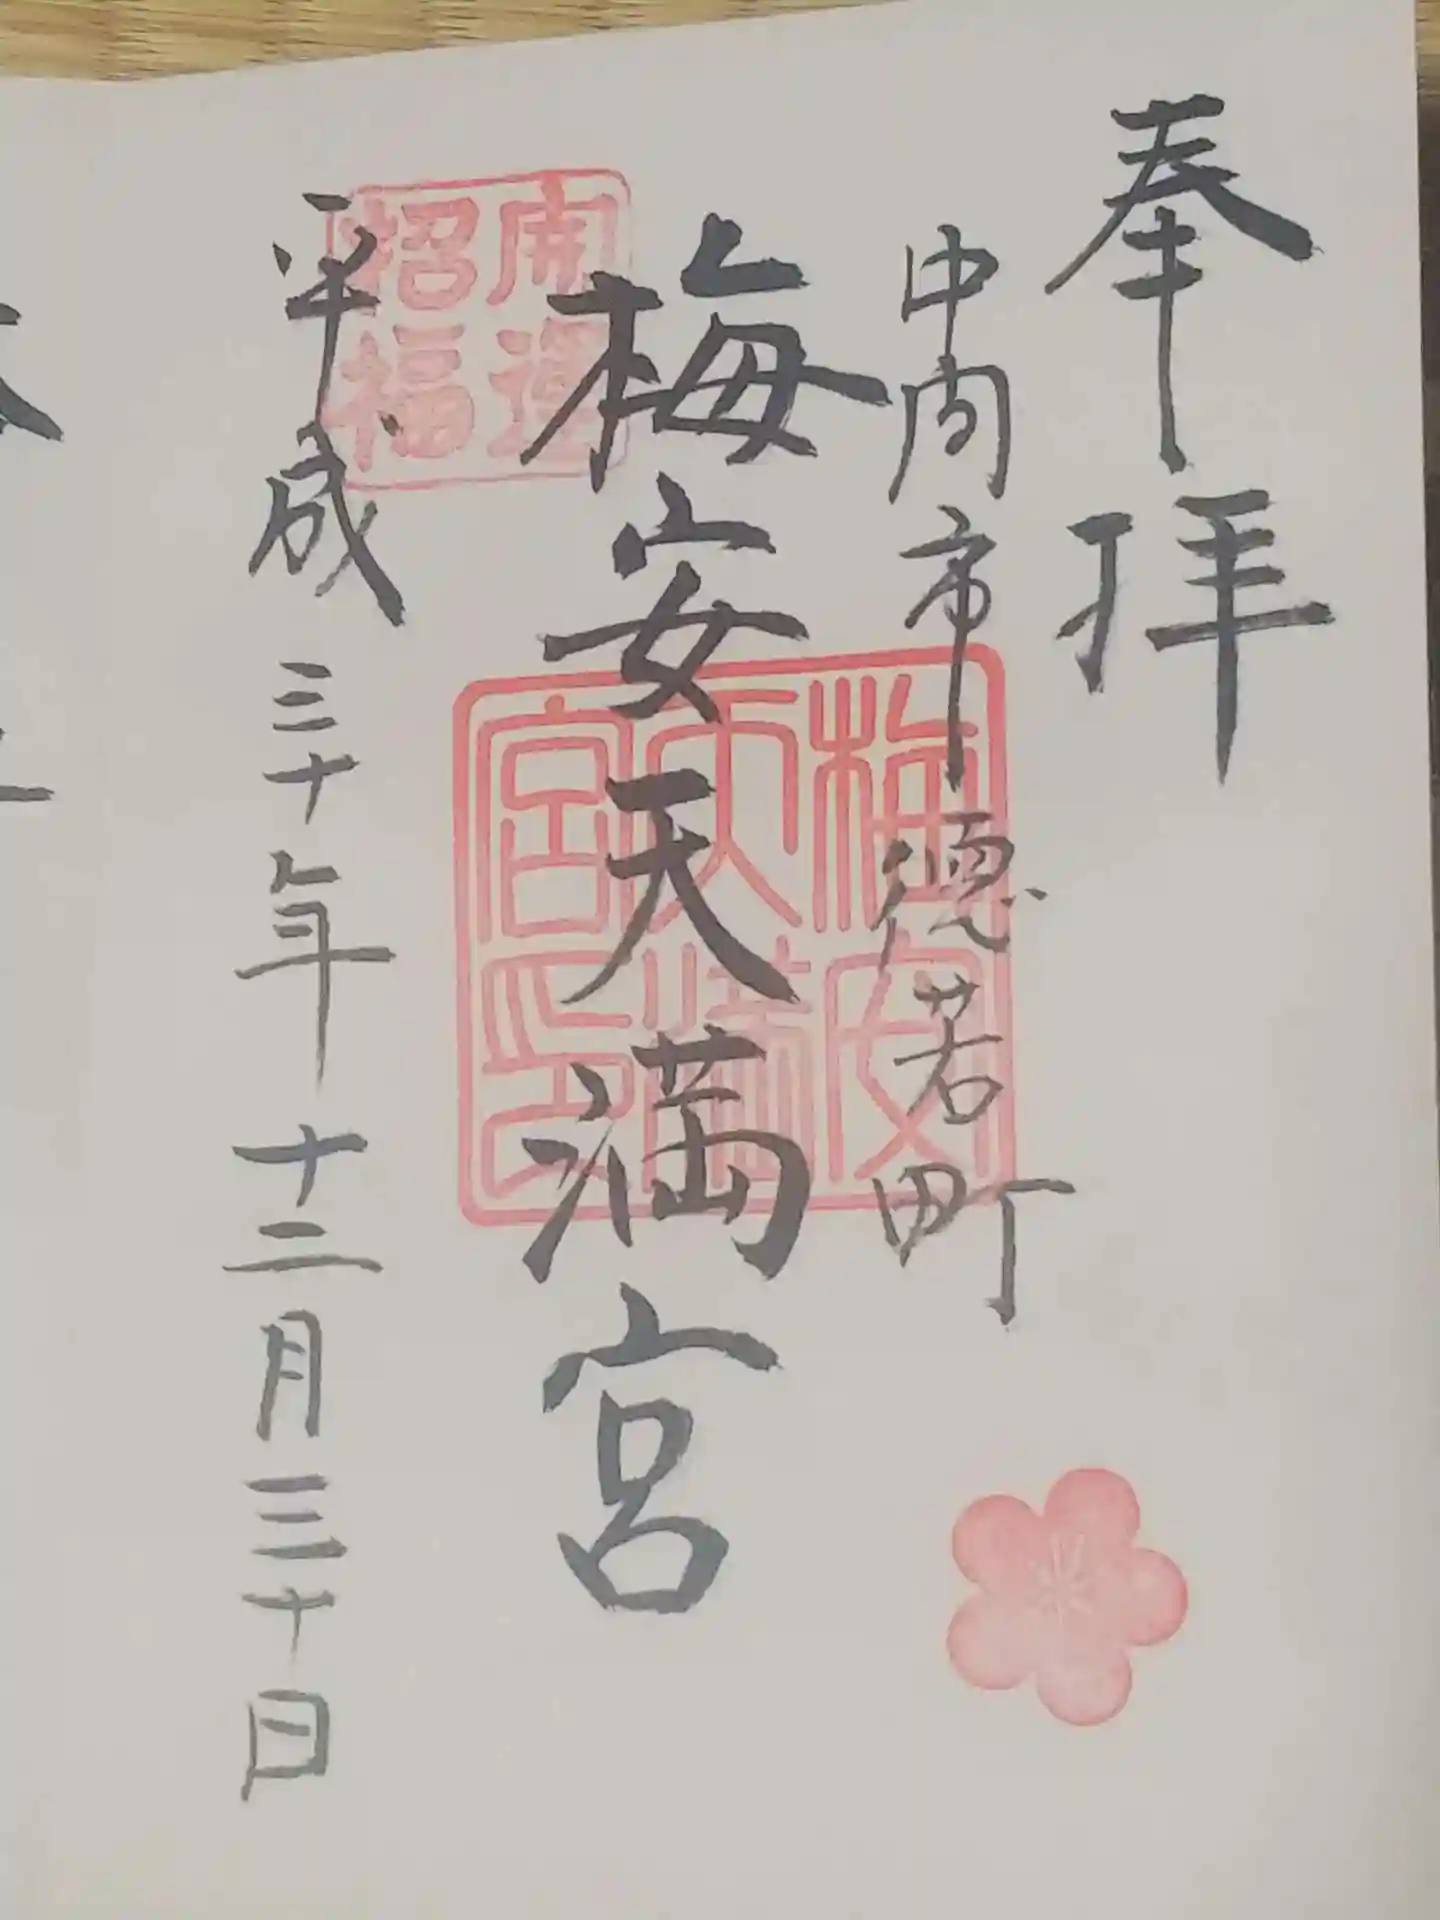 奉拝
中间市德若町
梅安天満宮
梅安天満宮印
開運招福
平成三十年十二月三十日